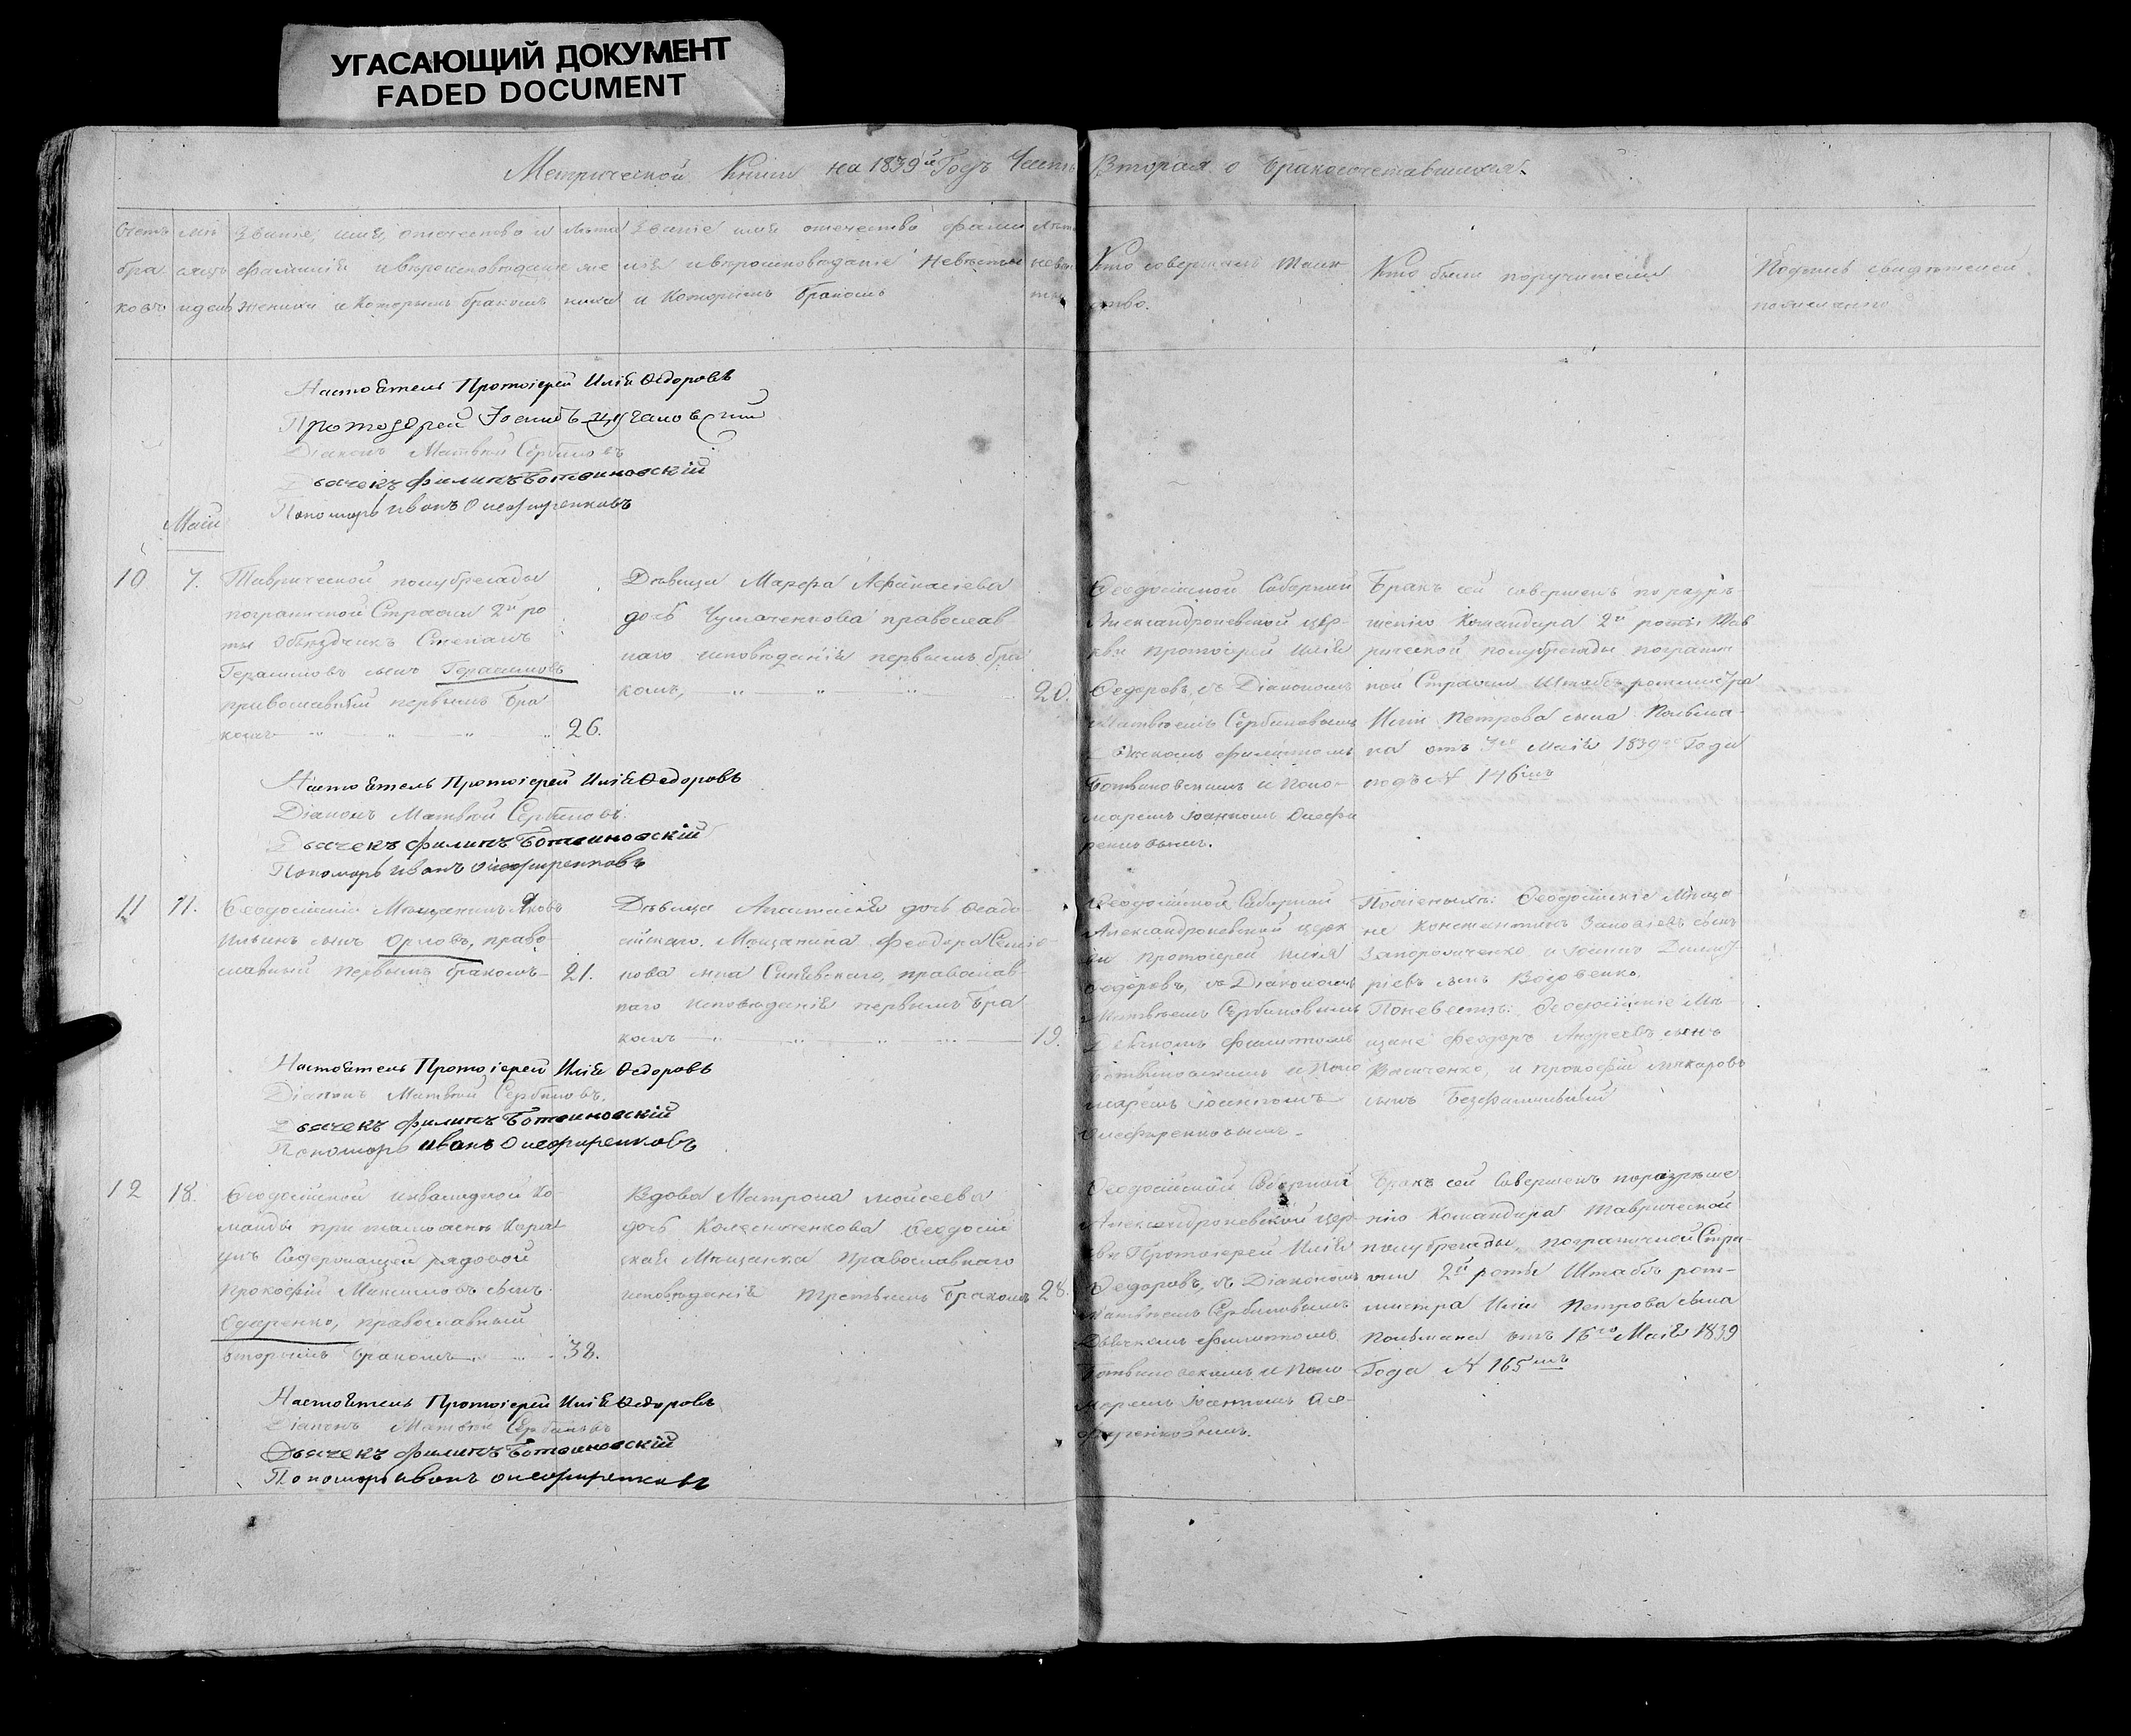 УГАСАЮЩИЙ ДОКУМЕНТ
FADED DOCUMENT
Метрической Книги на 1839й Годъ Часть Вторая о бракосочетавшихся.
Счетъ
бра
ковъ
мѣ
сяцъ
и день
Званіе, имя, отечество и
фамилія и вѣроисповѣданіе
жениха и которымъ бракомъ
Лѣта
же
ниха
Званіе имя отечество фами
лія и вѣроисповѣданіе Невѣсты
и которымъ бракомъ
Лѣта
невѣ
сты
Кто совершалъ таин
ство.
Кто были поручители
Подпись свидѣтелей
по желанію
Настоятель Протоіерей Илія Ѳедоровъ
Протоіерей Іосифъ
Діаконъ Матвѣй Сербиновъ
Дьячекъ Филипъ Ботвиновскій
Пономарь Иванъ Олефиренковъ
Маій
10
7.
Таврической полубрегады
пограничной Стражи 2й ро
ты Объѣздчикъ Степанъ
Герасимовъ сынъ Герасимовъ
православный первымъ бра
комъ
26.
Дѣвица Марѳа Афанасіева
дочь Чумаченкова православ
наго исповѣданія первымъ бра
комъ,
20.
Ѳеодосійской Соборной
Александроневской цер-
кви протоіерей Илія
Ѳедоровъ, съ Діакономъ
Матвѣемъ Сербиновымъ
Дьячкомъ Филипомъ
Ботвиновскимъ и Поно-
маремъ Іоанномъ Олефи
ренковымъ.
Бракъ сей совершенъ по разрѣ-
шенію Командира 2й роты Тав
рической полубрегады погранич
ной Стражи Штабъ ротмистра
Иліи Петрова сына Польма-
на отъ 3го Маія 1839го Года
подъ № 146мъ
Настоятель Протоіерей Илія Ѳедоровъ
Діаконъ Матвѣй Сербиновъ
Дьячекъ Филипъ Ботвиновскій
Пономарь Иванъ Олефиренковъ
11
11.
Ѳеодосійскій Мещанинъ Яковъ
Ильинъ сынъ Орловъ, право-
славный первымъ бракомъ
21.
Дѣвица Анастасія дочь Ѳеодо-
сійскаго Мещанина Феодора Семіо-
нова сына Синявскаго, православ-
наго исповѣданія первымъ бра
комъ
19.
Ѳеодосійской Соборной
Александроневской церк
ви протоіерей Илія
Ѳедоровъ, съ Діакономъ
Матвѣемъ Сербиновымъ
Дьячкомъ Филипомъ
Ботвиновскимъ и Поно
маремъ Іоанномъ
Олефиренковымъ
По женихѣ: Ѳеодосійскіе Меща
не Константинъ сынъ
Запорожченко и Іоаннъ Дмит
ріевъ сынъ
По невѣстѣ: Ѳеодосійскіе Мѣ
щане Феодоръ Андреевъ сынъ
Василенко, и Прокофій Макаровъ
сынъ Безфамильный
Настоятель Протоіерей Илія Ѳедоровъ
Діаконъ Матвѣй Сербиновъ.
Дьячекъ Филипъ Ботвиновскій
Пономарь Иванъ Олефиренковъ
12
18.
Ѳеодосійской инвалидной Ко-
манды при таможенѣ Кара
улъ Содержащей рядовой
Прокофій Максимовъ сынъ
православный
вторымъ бракомъ
38.
Вдова Матрона Моисеева
дочь Колесниченкова Ѳеодосій
ская Мещанка Православнаго
исповѣданія третьимъ бракомъ
28.
Ѳеодосійской Соборной
Александроневской цер-
кви Протоіерей Илія
Ѳедоровъ, съ Діакономъ
Матвѣемъ Сербиновымъ
Дьячкомъ Филипомъ
Ботвиновскимъ и Поно
маремъ Іоанномъ Оле-
фиренковымъ.
Бракъ сей Совершенъ по разрѣше
нію Командира Таврической
полубрегады, пограничной Стра-
жи 2й роты Штабъ рот-
мистра Иліи Петрова сына
Польмана отъ 16го Маія 1839
Года № 165мъ
Настоятель Протоіерей Илія Ѳедоровъ
Діаконъ Матвѣй Сербиновъ
Дьячекъ Филипъ Ботвиновскій
Пономарь Иванъ Олефиренковъ